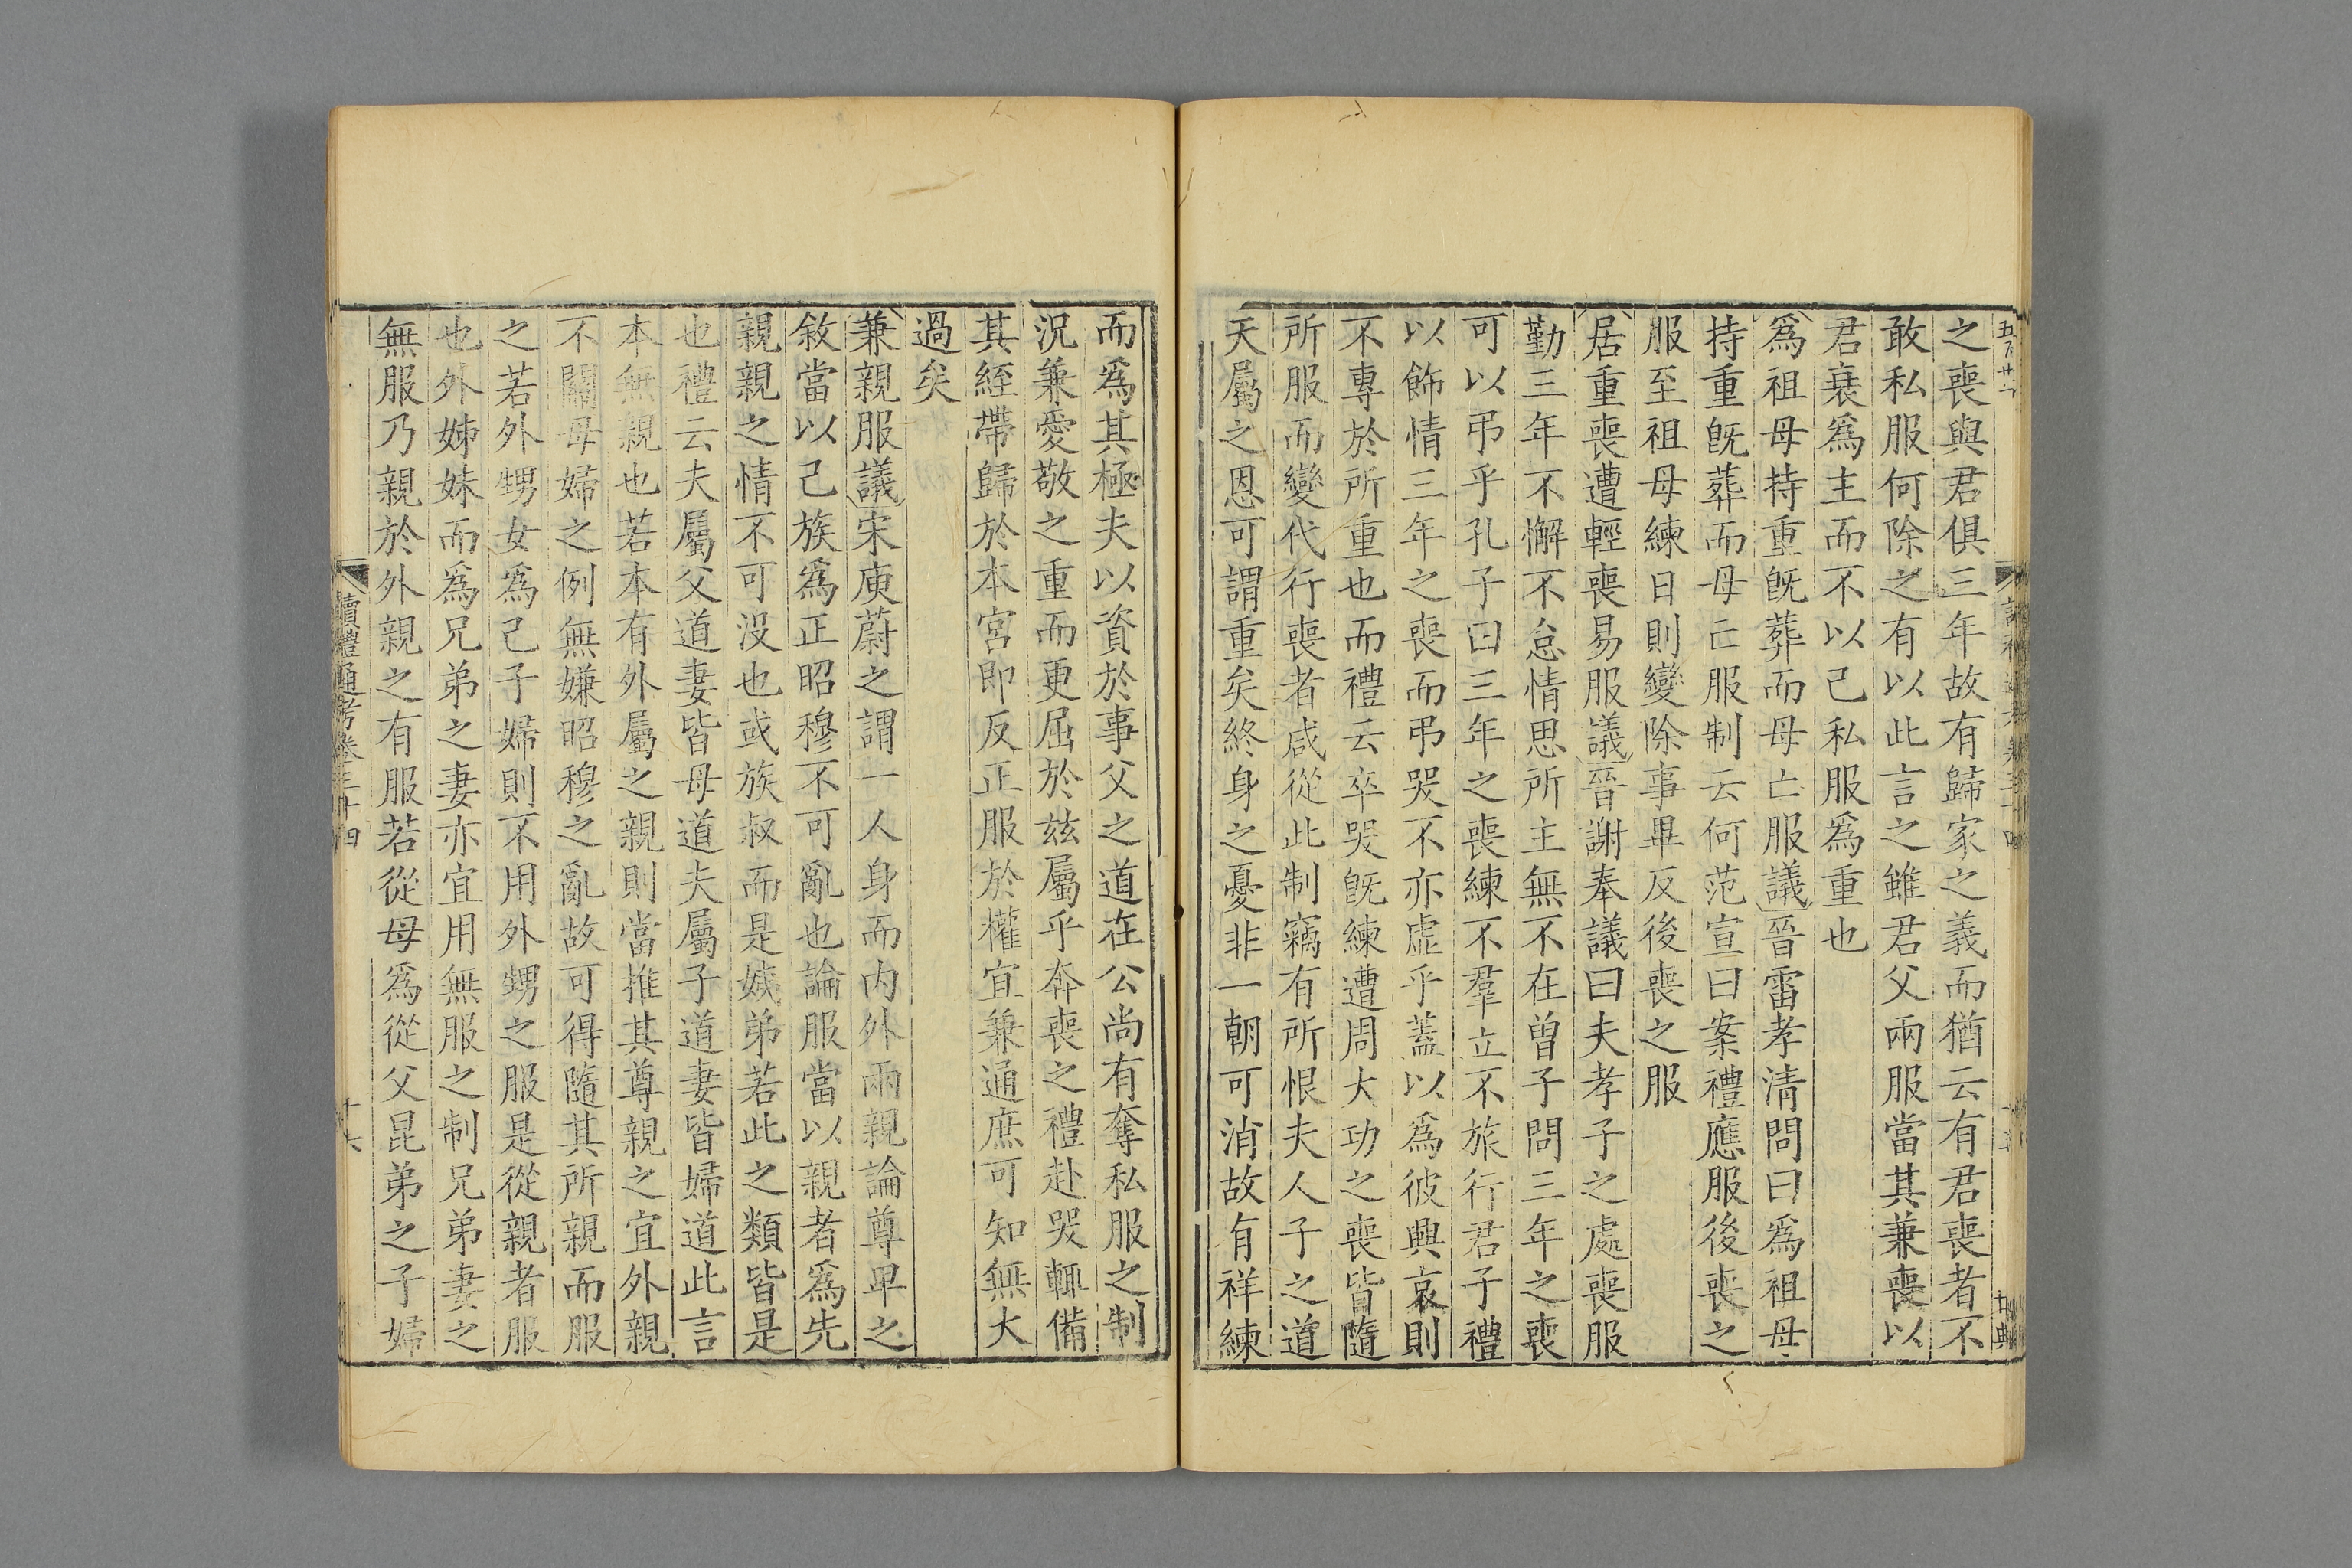 之喪與君俱三年故有歸家之義而猶云有君喪者不
敢私服何除之有以此言之雖君父兩服當其兼喪以
君衰爲主而不以己私服爲重也
爲祖母持重旣葬而母亡服議晉雷孝淸問曰爲祖母
持重旣葬而母亡服制云何范宣曰案禮應服後喪之
服至祖母練日則變除事畢反後喪之服
居重喪遭輕喪易服議晉謝奉議曰夫孝子之處喪服
勤三年不懈不怠情思所主無不在曾子問三年之喪
可以弔乎孔子曰三年之喪練不羣立不旅行君子禮
以飾情三年之喪而弔哭不亦虛乎蓋以爲彼興哀則
不專於所重也而禮云卒哭旣練遭周大功之喪皆隨
所服而變代行喪者咸從此制竊有所恨夫人子之道
天屬之恩可謂重矣終身之憂非一朝可消故有祥練
而爲其極夫以資於事父之道在公尚有奪私服之制
況兼愛敬之重而更屈於兹屬乎奔喪之禮赴哭輒備
其絰帶歸於本宮即反正服於權宜兼通庶可知無大
過矣
兼親服議宋庾蔚之謂一人身而内外兩親論尊卑之
敘當以己族爲正昭穆不可亂也論服當以親者爲先
親親之情不可没也或族叔而是姨弟若此之類皆是
也禮云夫屬父道妻皆母道夫屬子道妻皆婦道此言
本無親也若本有外屬之親則當推其尊親之宜外親
不關母婦之例無嫌昭穆之亂故可得隨其所親而服
之若外甥女爲己子婦則不用外甥之服是從親者服
也外姊妹而爲兄弟之妻亦宜用無服之制兄弟妻之
無服乃親於外親之有服若從母爲從父昆弟之子婦
讀禮通考卷三十四
十六